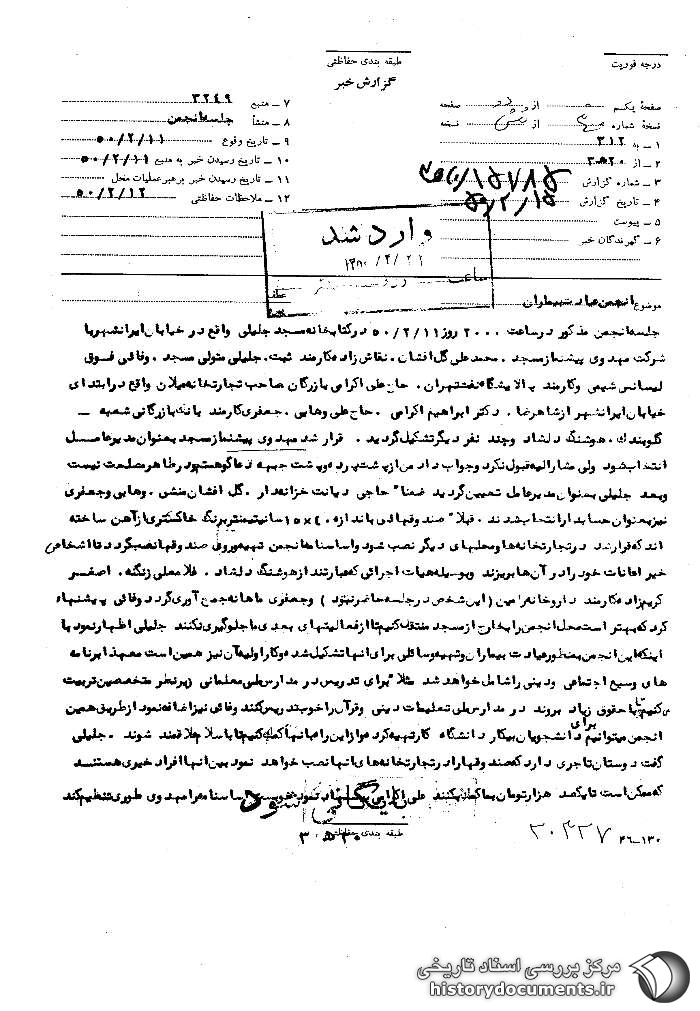 درجه فوریت
طبقه بندی حفاظتی
گزارش خبر
صفحهٔ یکم از دو صفحه
نسخهٔ شماره از نسخه
۱ – به ۳۱۲
۲ – از ۲۰ﻫ۲۰
۳ – شماره گزارش ۱۵۷۸۵
۴ – تاریخ گزارش ۵۰/۲/۱۵
۵ – پیوست
۶ – گیرندگان خبر
۷ – منبع ۳۲۴۹
۸ – منشأ جلسه انجمن
۹ – تاریخ وقوع ۵۰/۲/۱۱
۱۰ – تاریخ رسیدن خبر به منبع ۵۰/۲/۱۱
۱۱ – تاریخ رسیدن خبر برهبر عملیات محل
۱۲ – ملاحظات حفاظتی ۵۰/۲/۱۲
وارد شد
ساعت
موضوع انجمن عیادت بیماران
جلسه انجمن مذکور در ساعت ۲۰۰۰ روز ۵۰/۲/۱۱ در کتابخانه مسجد جلیلی واقع در خیابان ایرانشهر با
شرکت مهدوی پیشنماز مسجد . محمد علی گل افشان . نقاش زاده کارمند ثبت . جلیلی متولی مسجد . وفائی فوق
لیسانس شیمی وکارمند پالایشگاه نفت تهران . حاج علی اکرامی بازرگان صاحب تجارتخانه میلان واقع در ابتدای
خیابان ایرانشهر از شاهرضا . دکتر ابراهیم اکرامی . حاج علی وهابی . جعفری کارمند بانک بازرگانی شعبه –
گلوبندک . هوشنگ دلشاد وچند نفر دیگر تشکیل گردید . قرار شد مهدوی پیشنماز مسجد بعنوان مدیر عامل
انتخاب شود ولی مشارالیه قبول نکرد وجواب داد من از پشت پرده وپشت جبهه دعاگو هستم در ظاهر مصلحت نیست
وبعد جلیلی بعنوان مدیر عامل تعیین گردید ضمنا" حاجی دیانت خزانه دار . گل افشان منشی . وهابی وجعفری
نیز بعنوان حسابدار انتخاب شدند . قبلا" صندوقهائی باندازه ۱۵×۲۰ سانتیمتر برنگ خاکستری از آهن ساخته
اند که قرار شد در تجارتخانه ها ومحلهای دیگر نصب شود و اساسنامه انجمن تهیه وروی صندوقها نصب گردد تا اشخاص
خیر اعانات خود را در آن ها بریزند وبوسیله هیات اجرائی که عبارتند از هوشنگ دلشاد . غلامعلی زنگنه . اصغر
کریم زاده کارمند داروخانه رامین (این شخص در جلسه حاضر نبود ) وجعفری ماهانه جمع آوری گردد وفائی پیشنهاد
کرد که بهتر است محل انجمن را بخارج از مسجد منتقل کنیم تا از فعالیتهای بعدی ما جلوگیری نکنند جلیلی اظهار نمود با
اینکه این انجمن بمنظور عیادت بیماران وتهیه وسائلی برای انها تشکیل شده وکار اولیه آن نیز همین است معهذا برنامه
های وسیع اجتماعی ودینی را شامل خواهد شد مثلا" برای تدریس در مدارس ملی معلمانی زیر نظر متخصصین تربیت
می کنیم تا با حقوق زیاد بروند در مدارس ملی تعلیمات دینی وقرآن را خوب تدریس کنند وفائی نیز اضافه نمود از طریق همین
انجمن میتوانیم برای دانشجویان بیکار دانشگاه کار تهیه کرد و از این راه بانها کمک کنیم تا باسلام علاقمند شوند . جلیلی
گفت دوستان تاجری دارد که صندوقها را در تجارتخانه های انها نصب خواهد نمود بین انها افراد خیری هستند
که ممکن است تا یکصد هزار تومان بما کمک بکنند علی اکرامی اساسنامه را مهدوی طوری تنظیم کند
بایگانی شود
طبقه بندی حفاظتی
۲۰۴۲۷
۴۶–۱۳۰
مرکز بررسی اسناد تاریخی
historydocuments.ir